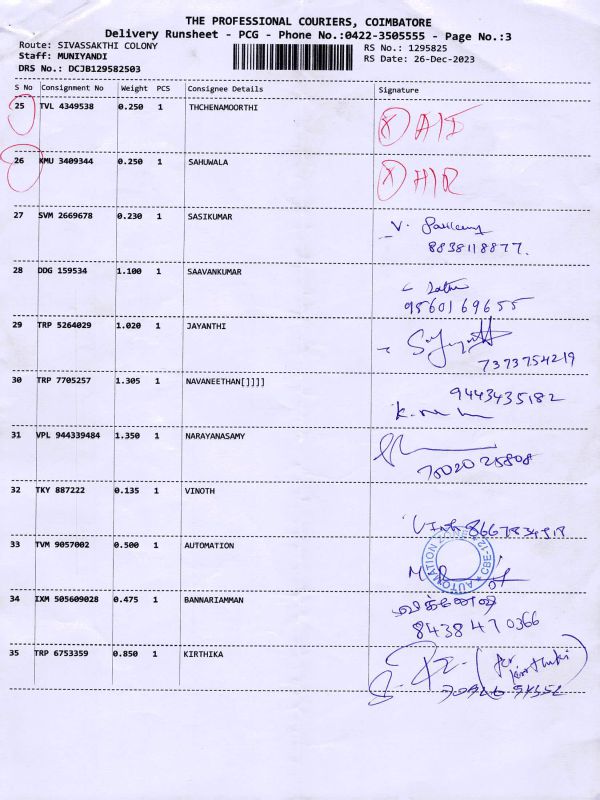 THE PROFESSIONAL COURIERS, COIMBATORE
Delivery Runsheet - PCG - Phone No.:0422-3505555 - Page No.:3
Route: SIVASSAKTHI COLONY
RS No.: 1295825
Staff: MUNIYANDI
RS Date: 26-Dec-2023
DRS No.: DCJB129582503
S No Consignment No Weight PCS Consignee Details Signature
25 TVL 4349538 0.250 1 THCHENAMOORTHI
26 KMU 3409344 0.250 1 SAHUWALA
27 SVM 2669678 0.230 1 SASIKUMAR V.
8838118877.
28 DDG 159534 1.100 1 SAAVANKUMAR
9560169655
29 TRP 5264029 1.020 1 JAYANTHI
7373754219
30 TRP 7705257 1.305 1 NAVANEETHAN[]]]]
9443435182
31 VPL 944339484 1.350 1 NARAYANASAMY
32 TKY 887222 0.135 1 VINOTH
33 TVM 9057002 0.500 1 AUTOMATION
34 IXM 505609028 0.475 1 BANNARIAMMAN
8438470366
35 TRP 6753359 0.850 1 KIRTHIKA